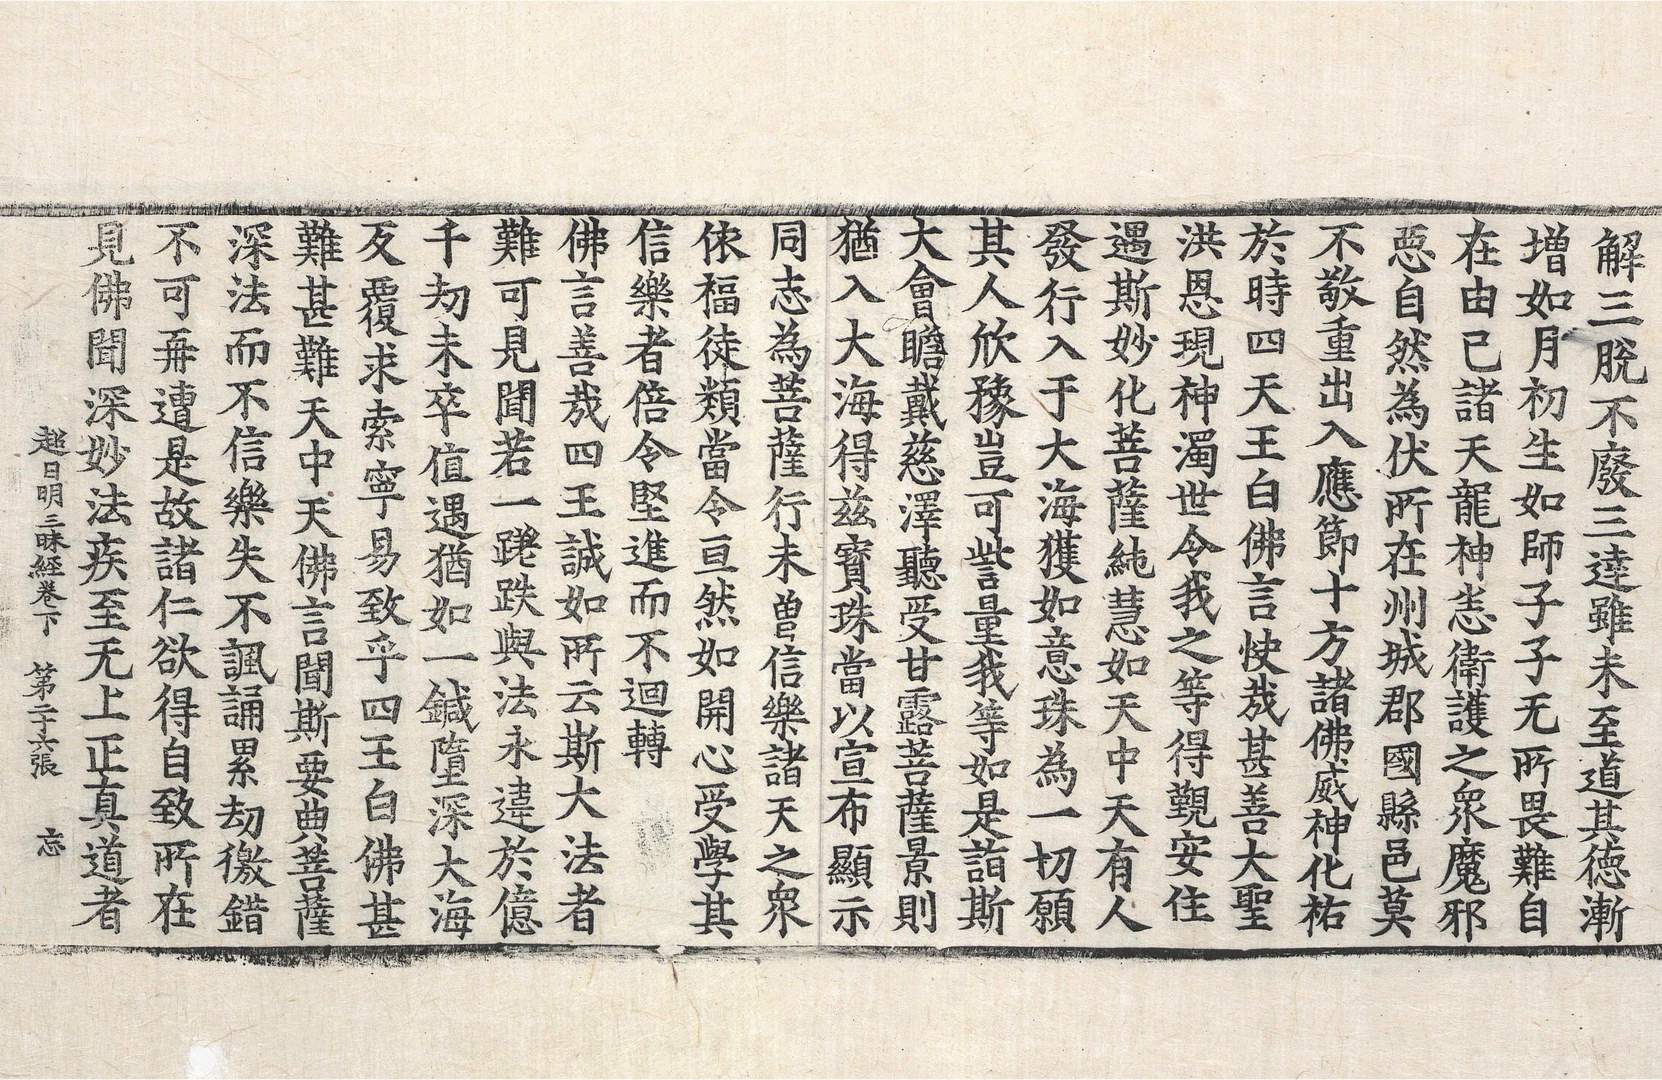 解三脫不廢三達雖未至道其德漸
增如月初生如師子子无所畏難自
在由己諸天龍神恙衛護之衆魔邪
惡自然為伏所在州城郡國縣邑莫
不敬重出入應節十方諸佛威神化祐
於時四天王白佛言快哉甚善大聖
洪恩現神濁世令我之等得覲安住
遇斯妙化菩薩純慧如天中天有人
發行入于大海獲如意珠為一切願
其人欣豫豈可訾量我等如是詣斯
大會瞻戴慈澤聽受甘露菩薩景則
猶入大海得茲寶珠當以宣布顯示
同志為菩薩行未曾信樂諸天之衆
依福徒類當令亘然如開心受學其
信樂者倍令堅進而不迴轉
佛言善哉四王誠如所云斯大法者
難可見聞若一蹉跌與法永違於億
千劫未卒值遇猶如一鍼墮深大海
反覆求索寧易致乎四王白佛甚
難甚難天中天佛言聞斯要典菩薩
深法而不信樂失不諷誦累劫徼錯
不可再遭是故諸仁欲得自致所在
見佛聞深妙法疾至无上正真道者
超日明三昧經卷下 第二十六張 忘